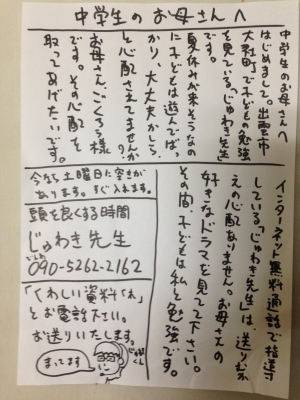 中学生のお母さんへ
中学生のお母さんへ
はじめまして。出雲市
大社町で子どもの勉強
を見ている、「じゅわき先生」
です。
夏休みが来そうなの
に子どもは遊んでばっ
かり、大丈夫かしら、
と心配されてませんか?
お母さん、ごくろう様
です。その心配を
取ってあげたいです。
インターネット無料通話で指導
している「じゅわき先生」は、送りむか
えの心配ありません。お母さんの
好きなドラマを見てて下さい。
その間、子どもは私と勉強です。
今なら土曜日に空きが
あります。すぐ入れます。
頭を良くする時間
じゅわき先生
090-5262-2162
「くわしい資料くれ」
とお電話下さい。
お送りいたします。
まってます